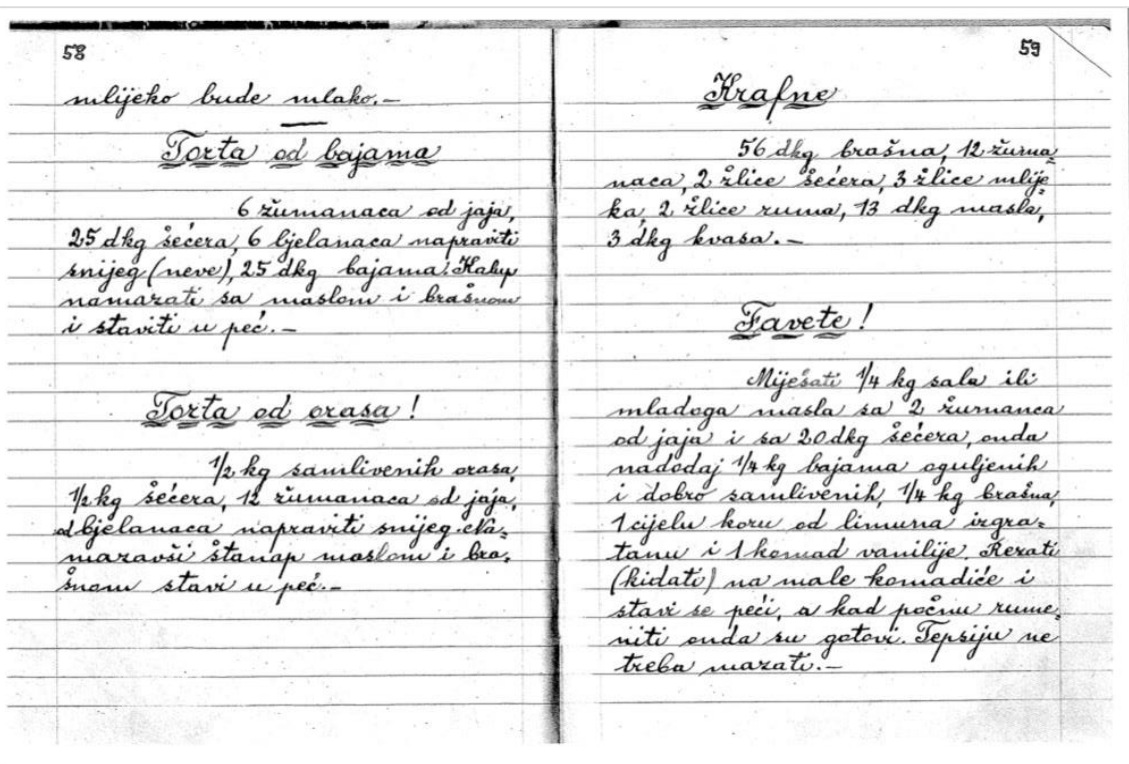 58
mlijeko bude mlako.-
Torta od bajama
6 žumanaca od jaja,
25 dkg šećera, 6 bjelanaca napraviti
snijeg (neve), 25 dkg bajama. Kalup
namazati sa maslom i brašnom
i staviti u peć.-
Torta od orasa!
1/2 kg samlivenih orasa,
1/2 kg šećera, 12 žumanaca od jaja,
od bjelanaca napraviti snijeg. Na=
mazavši štanap maslom i bra=
šnom stavi u peć.-
59
Krafne
56 dkg brašna, 12 žuma=
naca, 2 žlice šećera, 3 žlice mlije=
ka, 2 žlice ruma, 13 dkg masla,
3 dkg kvasa.-
Favete!
Miješati 1/4 kg sala ili
mladoga masla sa 2 žumanca
od jaja i sa 20 dkg šećera, onda
nadodaj 1/4 kg bajama oguljenih
i dobro samlivenih, 1/4 kg brašna,
1 cijelu koru od limuna izgra=
tanu i 1 komad vanilije. Rezati
(kidati) na male komadiće i
stavi se peći, a kad počnu rume=
niti onda su gotovi. Tepsiju ne
treba mazati.-